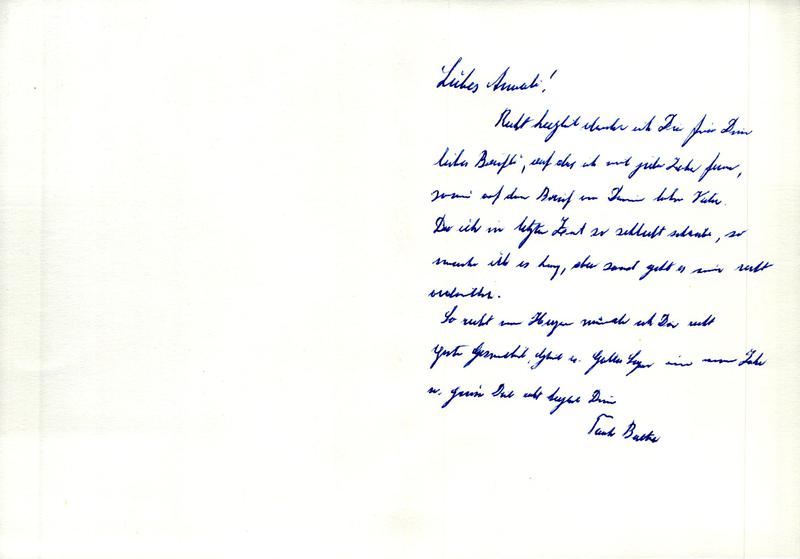 Liebes Anneli!
Recht herzlich danke ich Dir für Dein
liebes Briefli, auf das ich mich jedes Jahr freue,
sowie auf den Brief von Deinem lieben Vater.
Da ich in letzter Zeit so schlecht schreibe, so
mache ich es kurz, aber sonst geht es mir recht
ordentlich.
So recht von Herzen wünsche ich Dir recht
gute Gesundheit, Glück u. Gottes Segen im neuen Jahr
u. grüsse Dich recht herzlich Deine
Tante Bertha